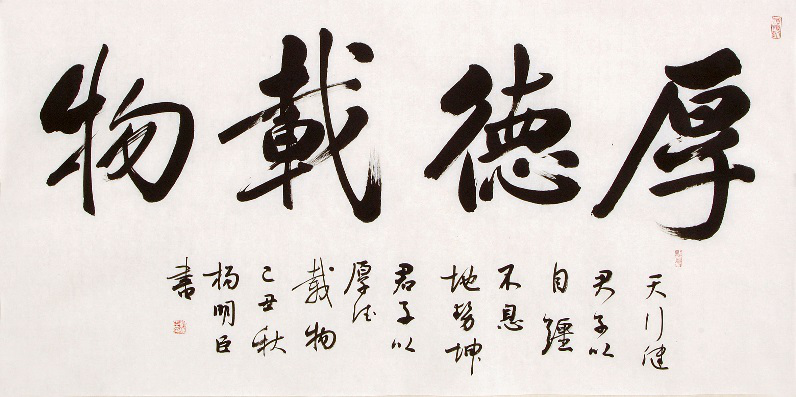 厚德載物
天行健
君子以
自彊
不息
地势坤
君子以
厚德
載物
己丑秋
楊明臣
書